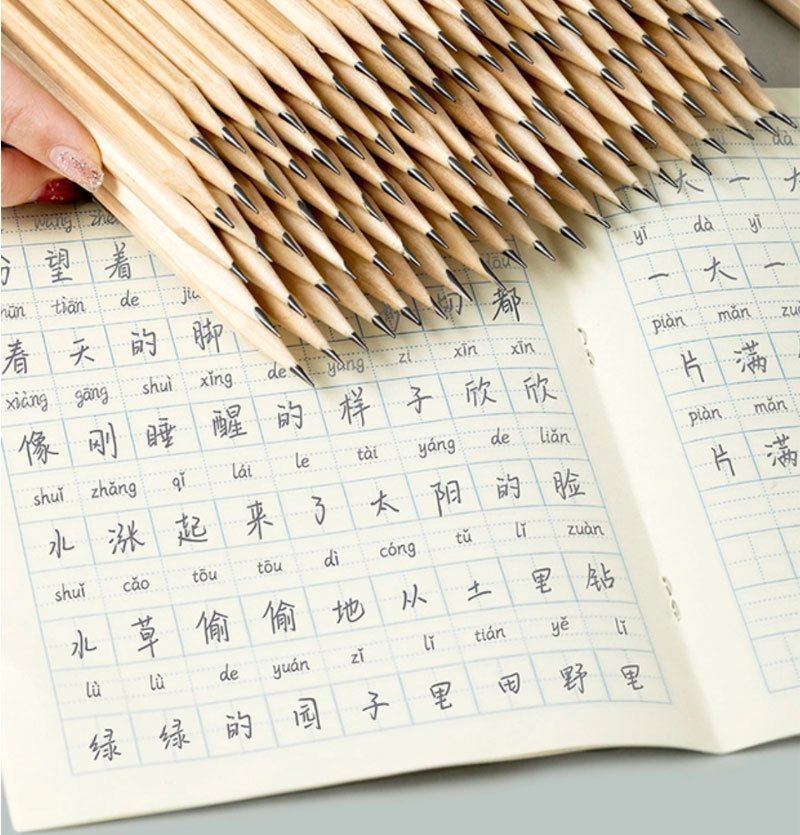 望 着
tiān de
春 天 的 脚 切 都
xiàng gāng shuì xǐng de yàng zi xīn xīn
像 刚 睡 醒 的 样 子 欣 欣
shuǐ zhǎng qǐ lái le tài yáng de liǎn
水 涨 起 来 了 太 阳 的 脸
shuǐ cǎo tōu tōu dì cóng tǔ lǐ zuàn
水 草 偷 偷 地 从 土 里 钻
lǜ lǜ de yuán zǐ lǐ tián yě lǐ
绿 绿 的 园 子 里 田 野 里
dà
一 大 一 大
yī dà yī
一 大 一
piàn mǎn
片 满
piàn mǎn
片 满